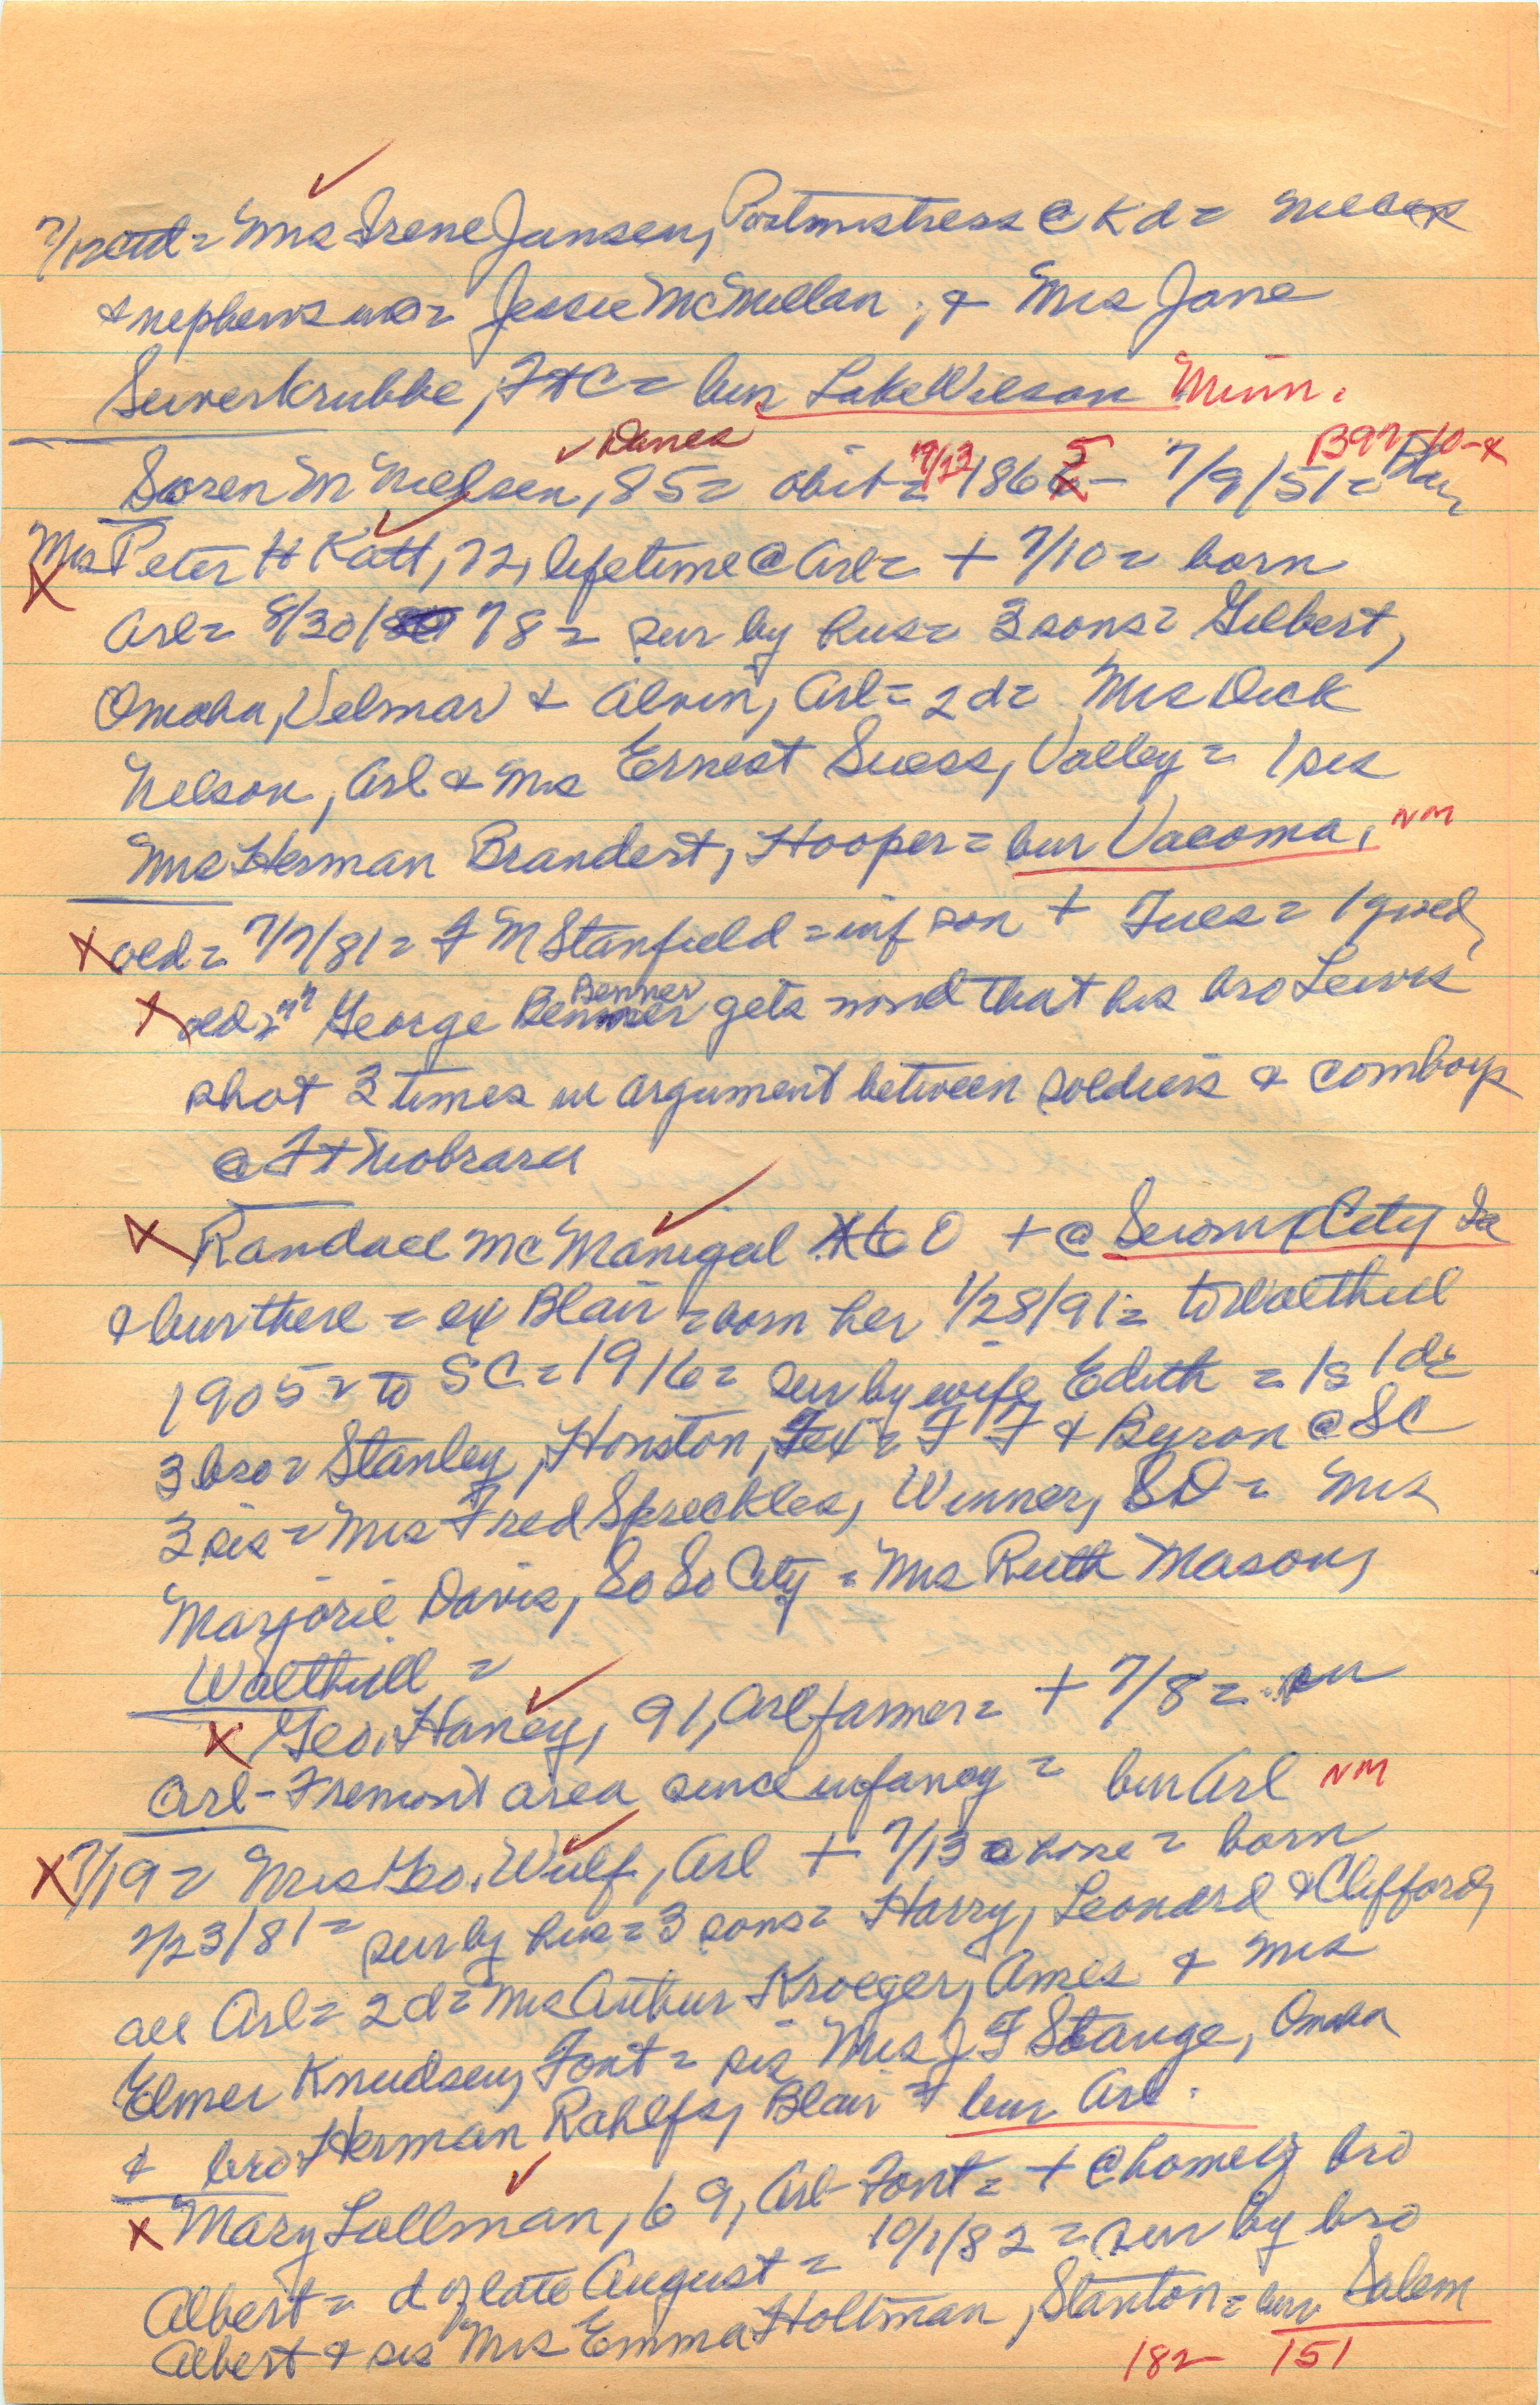 Mrs Irene Jansen, Postmistress @ Kd =
& nephews = Jessie McMillan, & Mrs Jane
Sieverkrubbe, FtC = bur Lake Wilson Minn.
✓ Danes 9/13 5 B97-10-
Soren M Nielsen, 85 = obit = 186 - 7/9/51 =
Mrs Peter H Katt, 72, lifetime @ Arl = + 7/10 = born
X
Arl = 8/30/ 78 = sur by hus = 3 sons = Gilbert,
Omaha, Velmar & Alvin, Arl = 2d = Mrs Dick
Nelson, Arl & Mrs Ernest Suess, Valley = 1 sis
Mrs Herman Brandert, Hooper = bur Vacoma, NM
X old = 7/7/81 = F M Stanfield = inf son + Tues =
Benner
X old = George Benner gets word that his bro Lewis
shot 3 times in argument between soldiers & cowboys
@ Ft Niobrara
X Randall McManigal 60 + @ Sioux City Ia
& bur there = ex Blair = born her 1/28/91 = to Walthill
1905 = to SC = 1916 = sur by wife Edith = 1s 1d =
3 bro = Stanley, Houston, Tex = F F & Byron @ SC
3 sis = Mrs Fred Spreckles, Winner, SD = Mrs
Marjorie Davis, So So City = Mrs Ruth Mason,
Walthill =
X Geo. Haney, 91, Arl farmer = + 7/8 = in
Arl-Fremont area since infancy = bur Arl NM
X 7/19 = Mrs Geo. Wulf, Arl + 7/13 @ home = born
2/23/81 = sur by hus = 3 sons = Harry, Leonard & Clifford,
all Arl = 2d = Mrs Arthur Kroeger, Ames & Mrs
Elmer Knudsen, Font = sis Mrs J F Stange, Omaha
& bro Herman Rahlfs, Blair = bur Arl.
X Mary Lallman, 69, Arl-Font = + @ home of bro
Albert = d of late August = 10/1/82 = sur by bro
Albert & sis Mrs Emma Holtman, Stanton = bur Salem
182 151